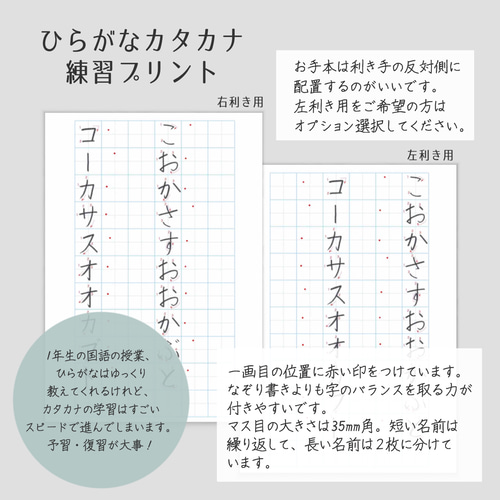 ひらがなカタカナ
練習プリント
お手本は利き手の反対側に
配置するのがいいです。
左利き用をご希望の方は
オプション選択してください。
右利き用
こおかさすおおかぶと
コーカサスオオカブ
左利き用
こおかさすおお
コーカサスオオ
1年生の国語の授業、
ひらがなはゆっくり
教えてくれるけれど、
カタカナの学習はすごい
スピードで進んでしまいます。
予習・復習が大事！
一画目の位置に赤い印をつけています。
なぞり書きよりも字のバランスを取る力が
付きやすいです。
マス目の大きさは35mm角。短い名前は
繰り返して、長い名前は２枚に分けて
います。